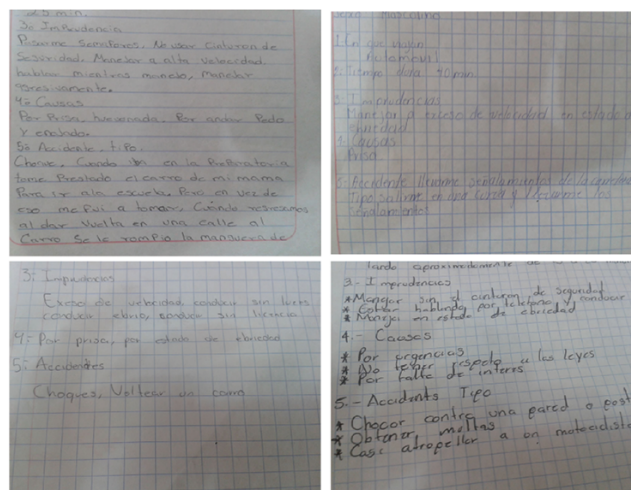 25 min.
3: Imprudencia
Pasarme Semaforos. No usar Cinturon de
Seguridad. Manejar a alta velocidad.
hablar mientras manejo, manejar
agresivamente.
4: Causas
Por Prisa, huevonada. Por andar Pedo
y enojado.
5: Accidente. tipo.
Choque, Cuando en la Preparatoria
tome Prestado el carro de mi mama
Para ir ala escuela. Pero en vez de
eso me fui a tomar, Cuando regresamos
al dar vuelta en una calle al
Carro se le rompio la manguera de
Sexo Masculino
1. En que viajan
Automovil
2. Tiempo dura 40 min
3. Imprudencias
Manejar a exceso de velocidad, en estado
ebriedad
4. Causas
Prisa
5. Accidente llevarme señalamientos de la carretera
Tipo salirme en una curva y llevarme los
señalamientos
3: Imprudencias
Exceso de velocidad, conducir sin luces
conducir ebrio, conducir sin licencia
4: Por prisa, por estado de ebriedad
5: Accidentes
Choques, Voltear un carro
tardo aproximadamente de
3.- Imprudencias
* Manejar sin el cinturon de seguridad
* Estar hablando por telefono y conducir
* Manejar en estado de ebriedad
4.- Causas
* Por urgencias
* No tener respeto a las leyes
* Por falta de interes
5.- Accidents Tipo
* Chocar contra una pared o post
* Obtener multas
* Casi atropellar a un motociclista